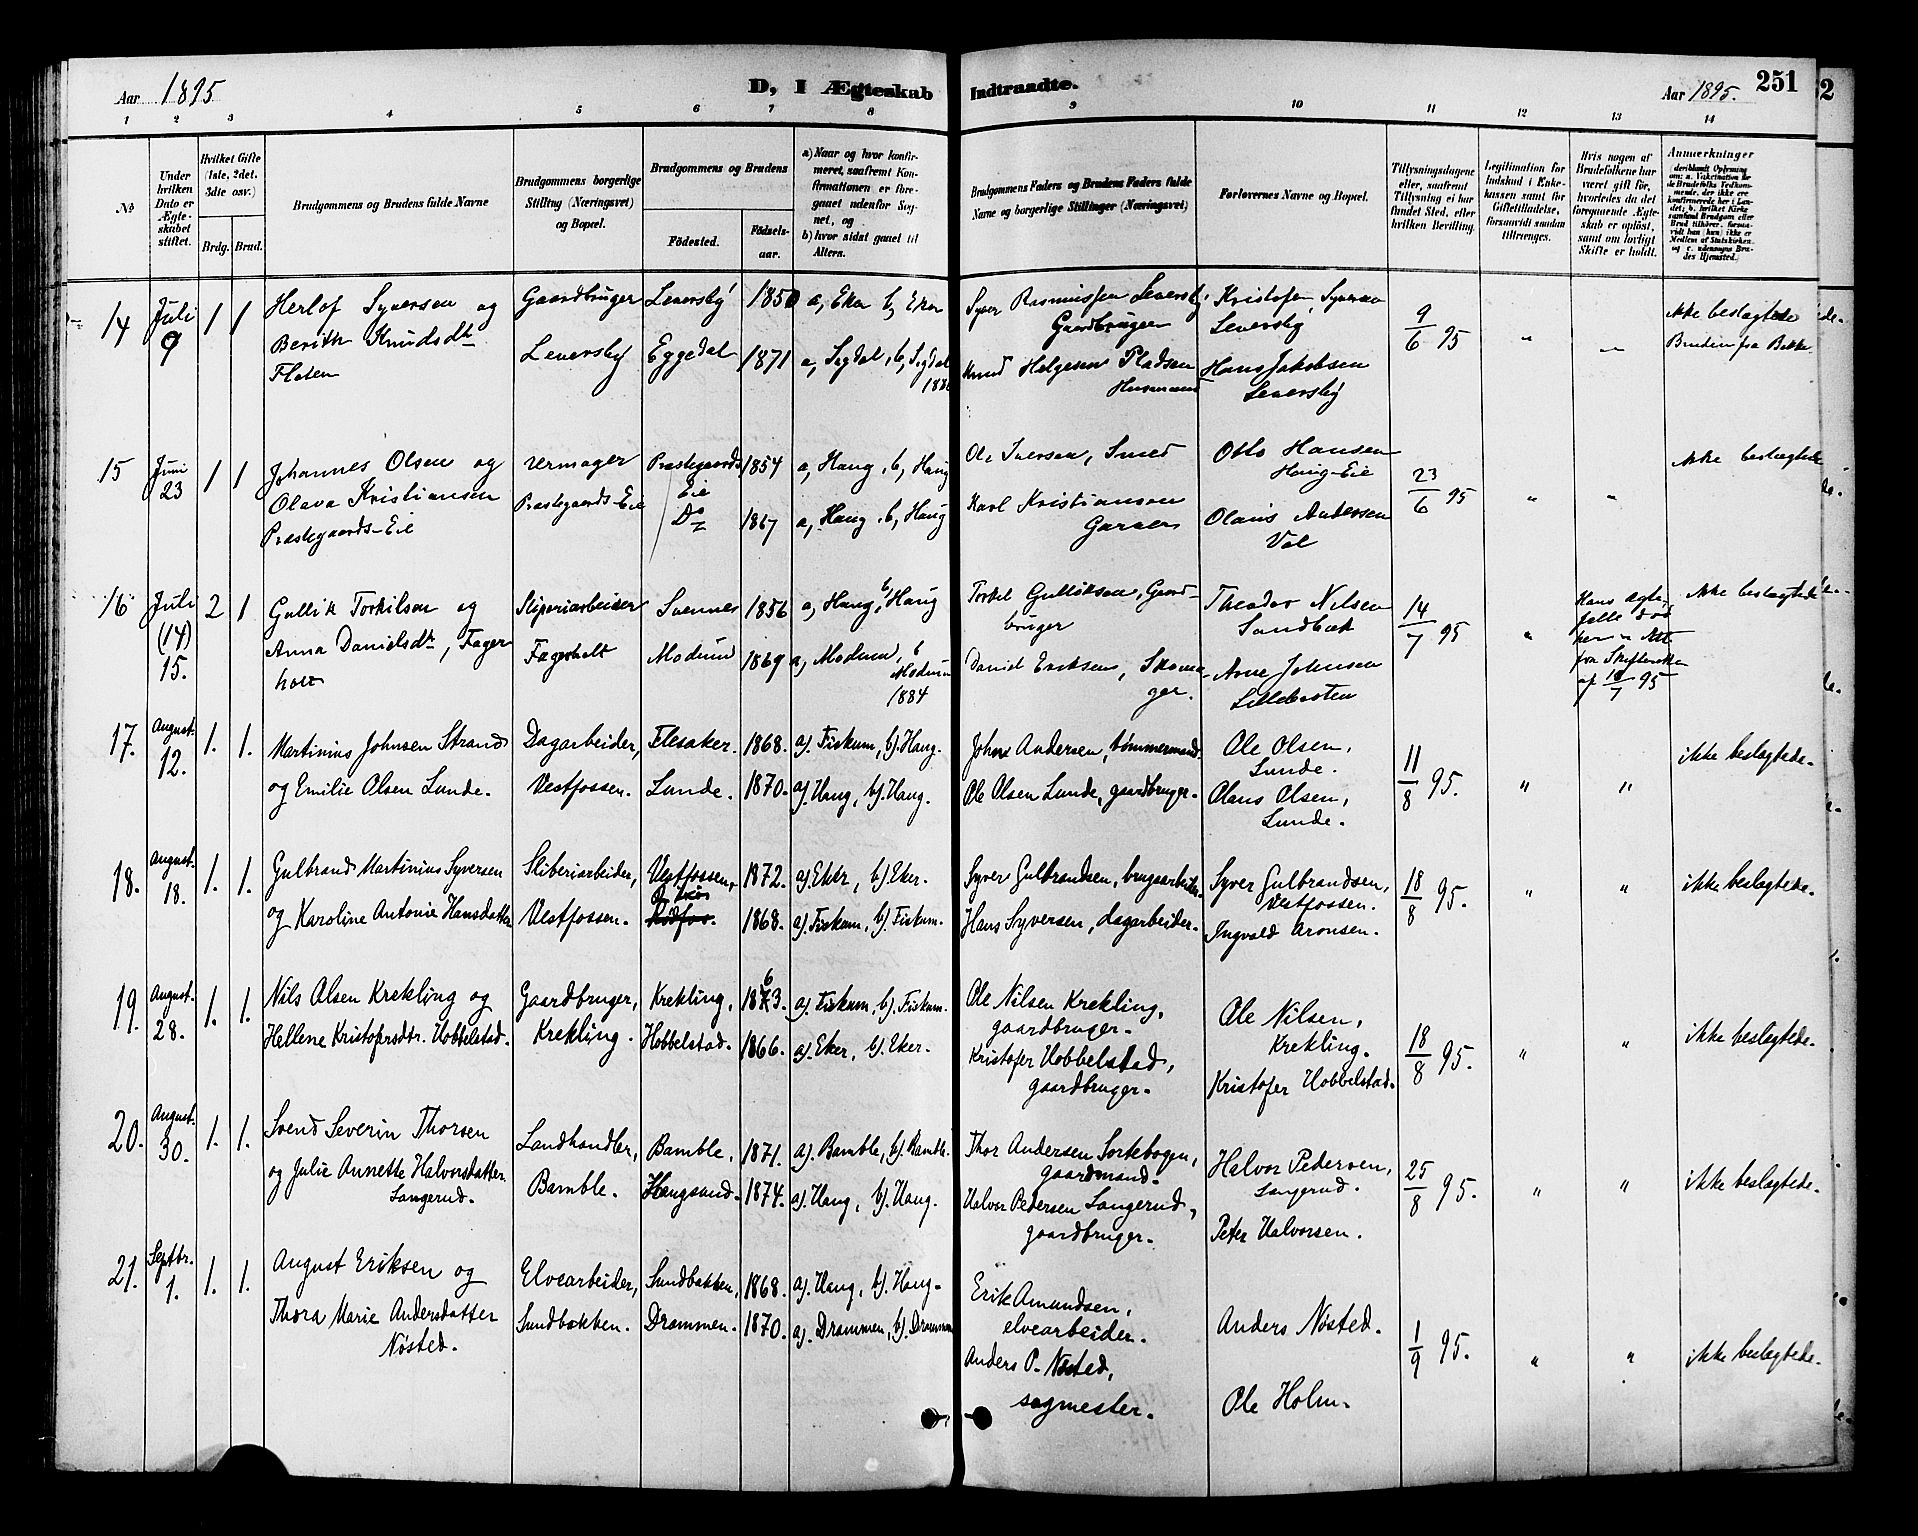 Aar 1895 D, I Ægteskab Indtraadte. Aar 1895. 251
1 2 3 4 5 6 7 8 9 10 11 12 13 14
No
Under hvilken Dato er Ægteskabet stiftet.
Hvilket Gifte (1ste, 2det, 3die osv.)
Brdg. Brud.
Brudgommens og Brudens fulde Navne
Brudgommens borgerlige Stilling (Næringsvei) og Bopæl.
Brudgommens og Brudens
Födested. Födselsaar.
a) Naar og hvor konfirmeret, saafremt Konfirmationen er foregaaet udenfor Sognet, og
b) hvor sidst gaaet til Alters.
Brudgommens Faders og Brudens Faders fulde Navne og borgerlige Stillinger (Næringsvei)
Forlovernes Navne og Bopæl.
Tillysningsdagene eller, saafremt Tillysning ei har fundet Sted, efter hvilken Bevilling.
Legitimation for Indskud i Enkekassen samt for Giftetilladelse, forsaavidt saadan tiltrænges.
Hvis nogen af Brudefolkene har været gift før, hvorledes da det foregaaende Ægteskab er oplöst, samt om lovligt Skifte er holdt.
Anmærkninger
14 Juli 9 1 1 Herlof Syversen og Gaardbruger Leversby 1850 a, Eker b, Eker Syver Rasmussen Leversby Gaardbruger Kristofer Syversen Leversby 9/6 95 " " ikke beslægtede
Berith Knudsdt. Flaten Leversby Eggedal 1871 a, Sigdal, b, Sigdal Knud Helgesen Pladsen Husmand Hans Jakobsen Leversby Bruden fra Bakke
15 Juni 23 1 1 Johannes Olsen og Prestegaards Eie 1854 a, Haug, b, Haug Ole Iversen, Smed Otto Hansen Haug-Eie 23/6 95 " " ikke beslægtede
Olava Kristiansen Præstegaards-Eie Præstegaards-Eie Do 1867 a, Haug, b, Haug Karl Kristiansen Garver Olaus Andersen Vol
16 Juli (14) 15. 2 1 Gullik Torkilsen og Sliperiarbeider Svennes 1856 a, Haug, b, Haug Torkel Gulliksen, Gaardbruger Theodor Nilsen Sandbæk 14/7 95 " Hans Ægtefælle død her " Att fra Skifteretten af 10/7 95 ikke beslægtede
Anna Danielsdt., Fagerholt Fagerholt Modum 1869 a, Modum, b Modum 1884 Daniel Eriksen, Skomager. Arne Johnsen Lillebosten
17. August. 12. 1. 1. Martinius Johnsen Strand Dagarbeider, Flesaker. 1868. a). Fiskum, b). Haug. Johns Andersen, tømmermand. Ole Olsen, Lunde. 11/8 95. " " ikke beslægtede.
og Emilie Olsen Lunde. Vestfossen. Lunde. 1870. a). Haug, b). Haug. Ole Olsen Lunde, gaardbruger. Olaus Olsen, Lunde.
18. August. 18. 1. 1. Gulbrand Martinius Syversen Sliberiarbeider, Vestfossen, 1872. a). Eker, b). Eker. Syver Gulbrandsen, brugsarbeider Syver Gulbrandsen, Vestfossen. 18/8 95. " " ikke beslægtede.
og Karoline Antonie Hansdatter Vestfossen. 1868. a). Fiskum, b). Fiskum. Hans Syversen, dagarbeider. Ingvald Aronsen.
19. August. 28. 1. 1. Nils Olsen Krekling og Gaardbruger, Krekling, 1863. a). Fiskum, b). Fiskum. Ole Nilsen Krekling, gaardbruger. Ole Nilsen, Krekling. 18/8 95. " " ikke beslægtede.
Hellene Kristofersdtr. Hobbelstad. Krekling. Hobbelstad. 1866. a). Eker, b). Eker. Kristofer Hobbelstad, gaardbruger. Kristofer Hobbelstad.
20. August. 30. 1. 1. Svend Severin Thorsen Landhandler, Bamble, 1871. a). Bamble, b). Bamble. Thor Andersen Sortebogen, gaardmand. Halvor Pedersen, Langerud. 25/8 95. " " ikke beslægtede.
og Julie Annette Halvorsdatter Langerud. Bamble. Haugsund. 1874. a). Haug, b). Haug. Halvor Pedersen Langerud, gaardbruger. Peter Halvorsen.
21. Septbr. 1. 1. 1. August Eriksen og Elvearbeider, Sundbakken, 1868. a). Haug, b). Haug. Erik Amundsen, elvearbeider. Anders Nøsted. 1/9 95. " " ikke beslægtede.
Thora Marie Andersdatter Nøsted. Sundbakken. Drammen. 1870. a). Drammen, b). Drammen Anders P. Nøsted, sagmester. Ole Holm.